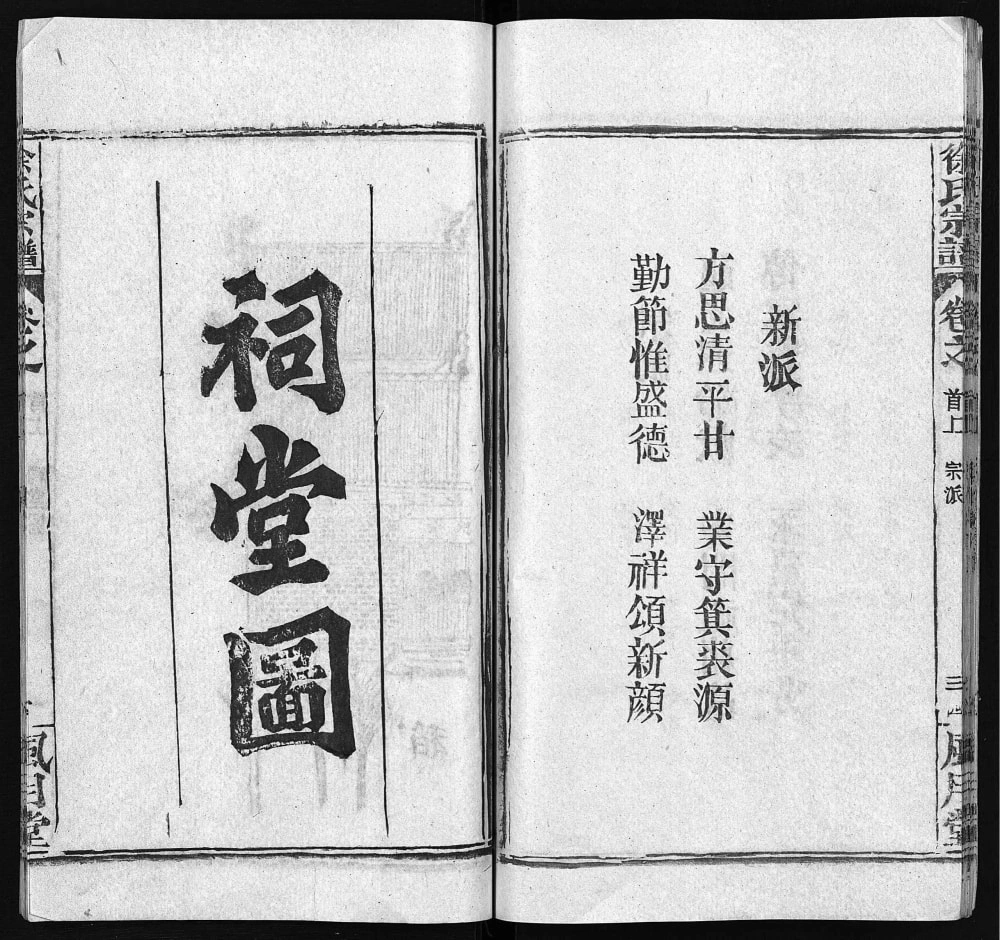 徐氏宗譜
卷之
首上
宗派
風月堂
新派
方思清平甘 業守箕裘源
勤節惟盛德 澤祥頌新顏
祠堂圖
徐氏宗譜
卷之
風月堂